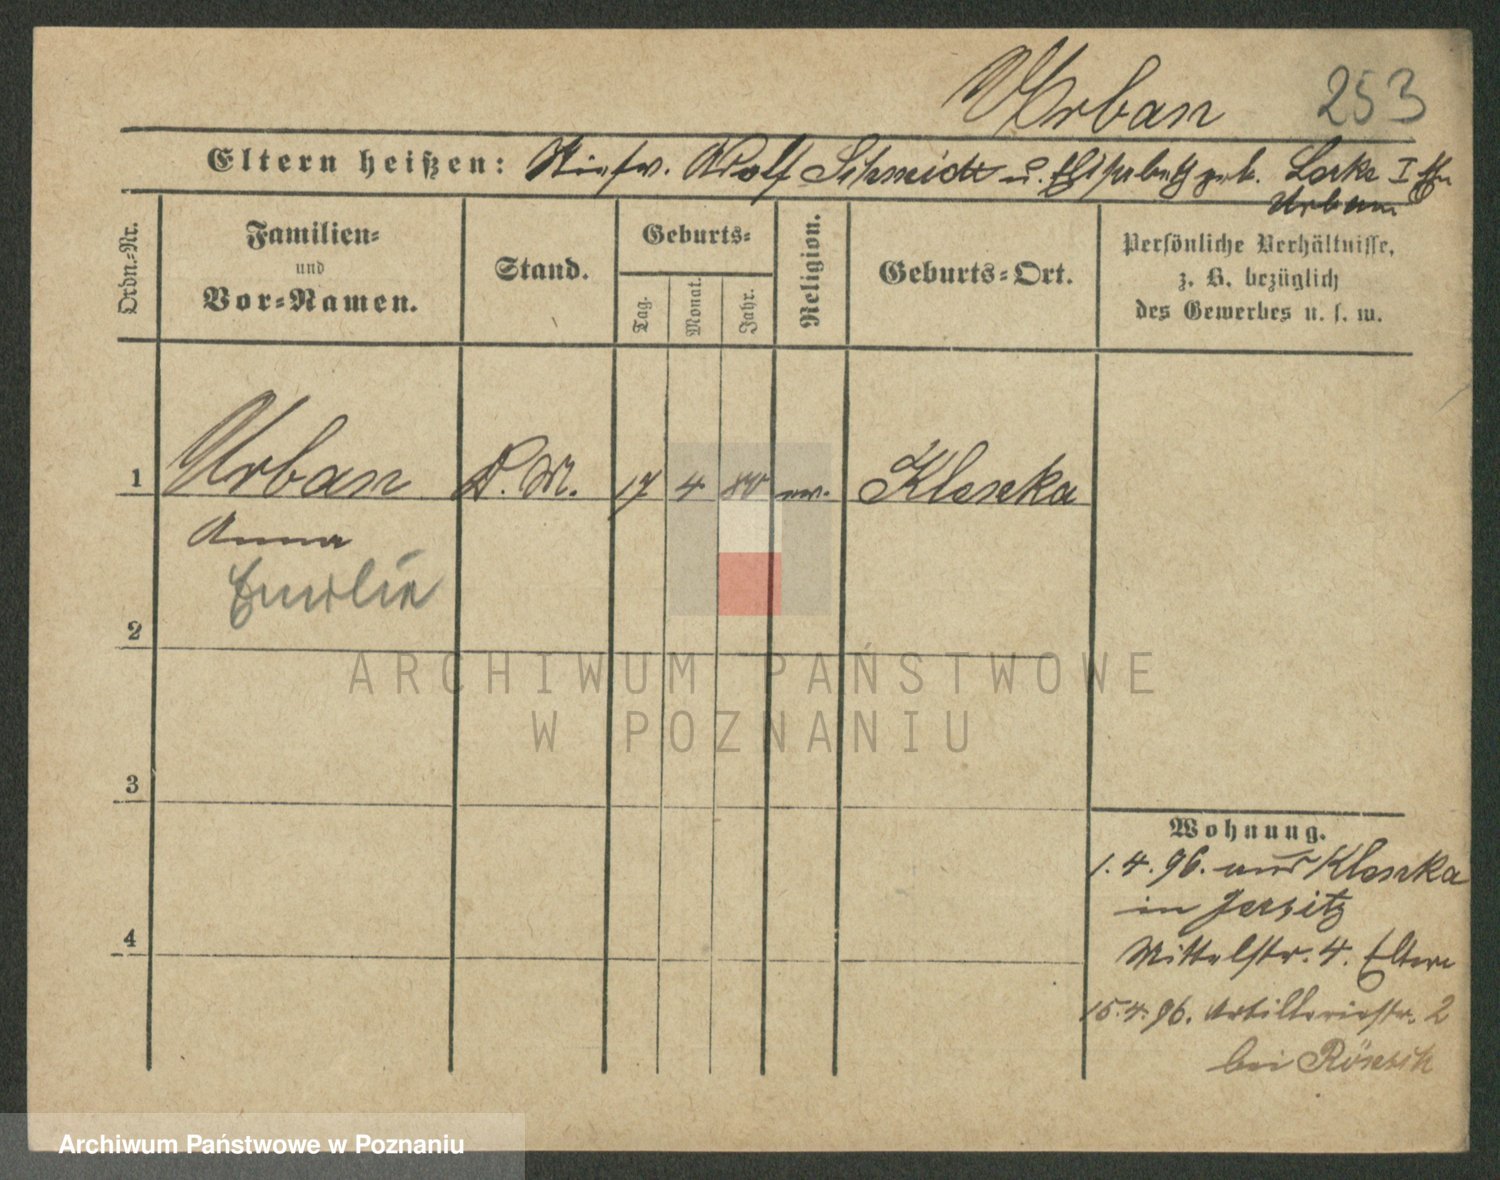 Urban 253
Eltern heißen: Stiefv. Adolf Schmidt u. geb. Lorke I
Urban
Ordn.-Nr.
Familien-
und
Vor-Namen.
Stand.
Geburts-
Tag.
Monat.
Jahr.
Religion.
Geburts-Ort.
Persönliche Verhältnisse,
z. B. bezüglich
des Gewerbes u. s. w.
1 Urban D. M. 17 4 80 ev. Kleszka
Anna
Emilie
2
3
4
Wohnung.
1.4.96. aus Kleszka
in Jersitz
Mittelstr. 4. Eltern
15.4.96. Artilleriestr. 2
bei
ARCHIWUM PAŃSTWOWE
W POZNANIU
Archiwum Państwowe w Poznaniu